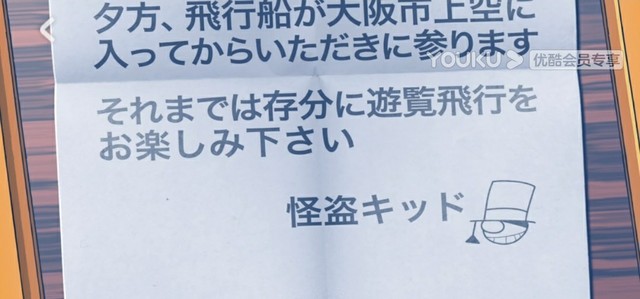 夕方、飛行船が大阪市上空に
入ってからいただきに参ります
YOUKU 优酷会员专享
それまでは存分に遊覧飛行を
お楽しみ下さい
怪盗キッド